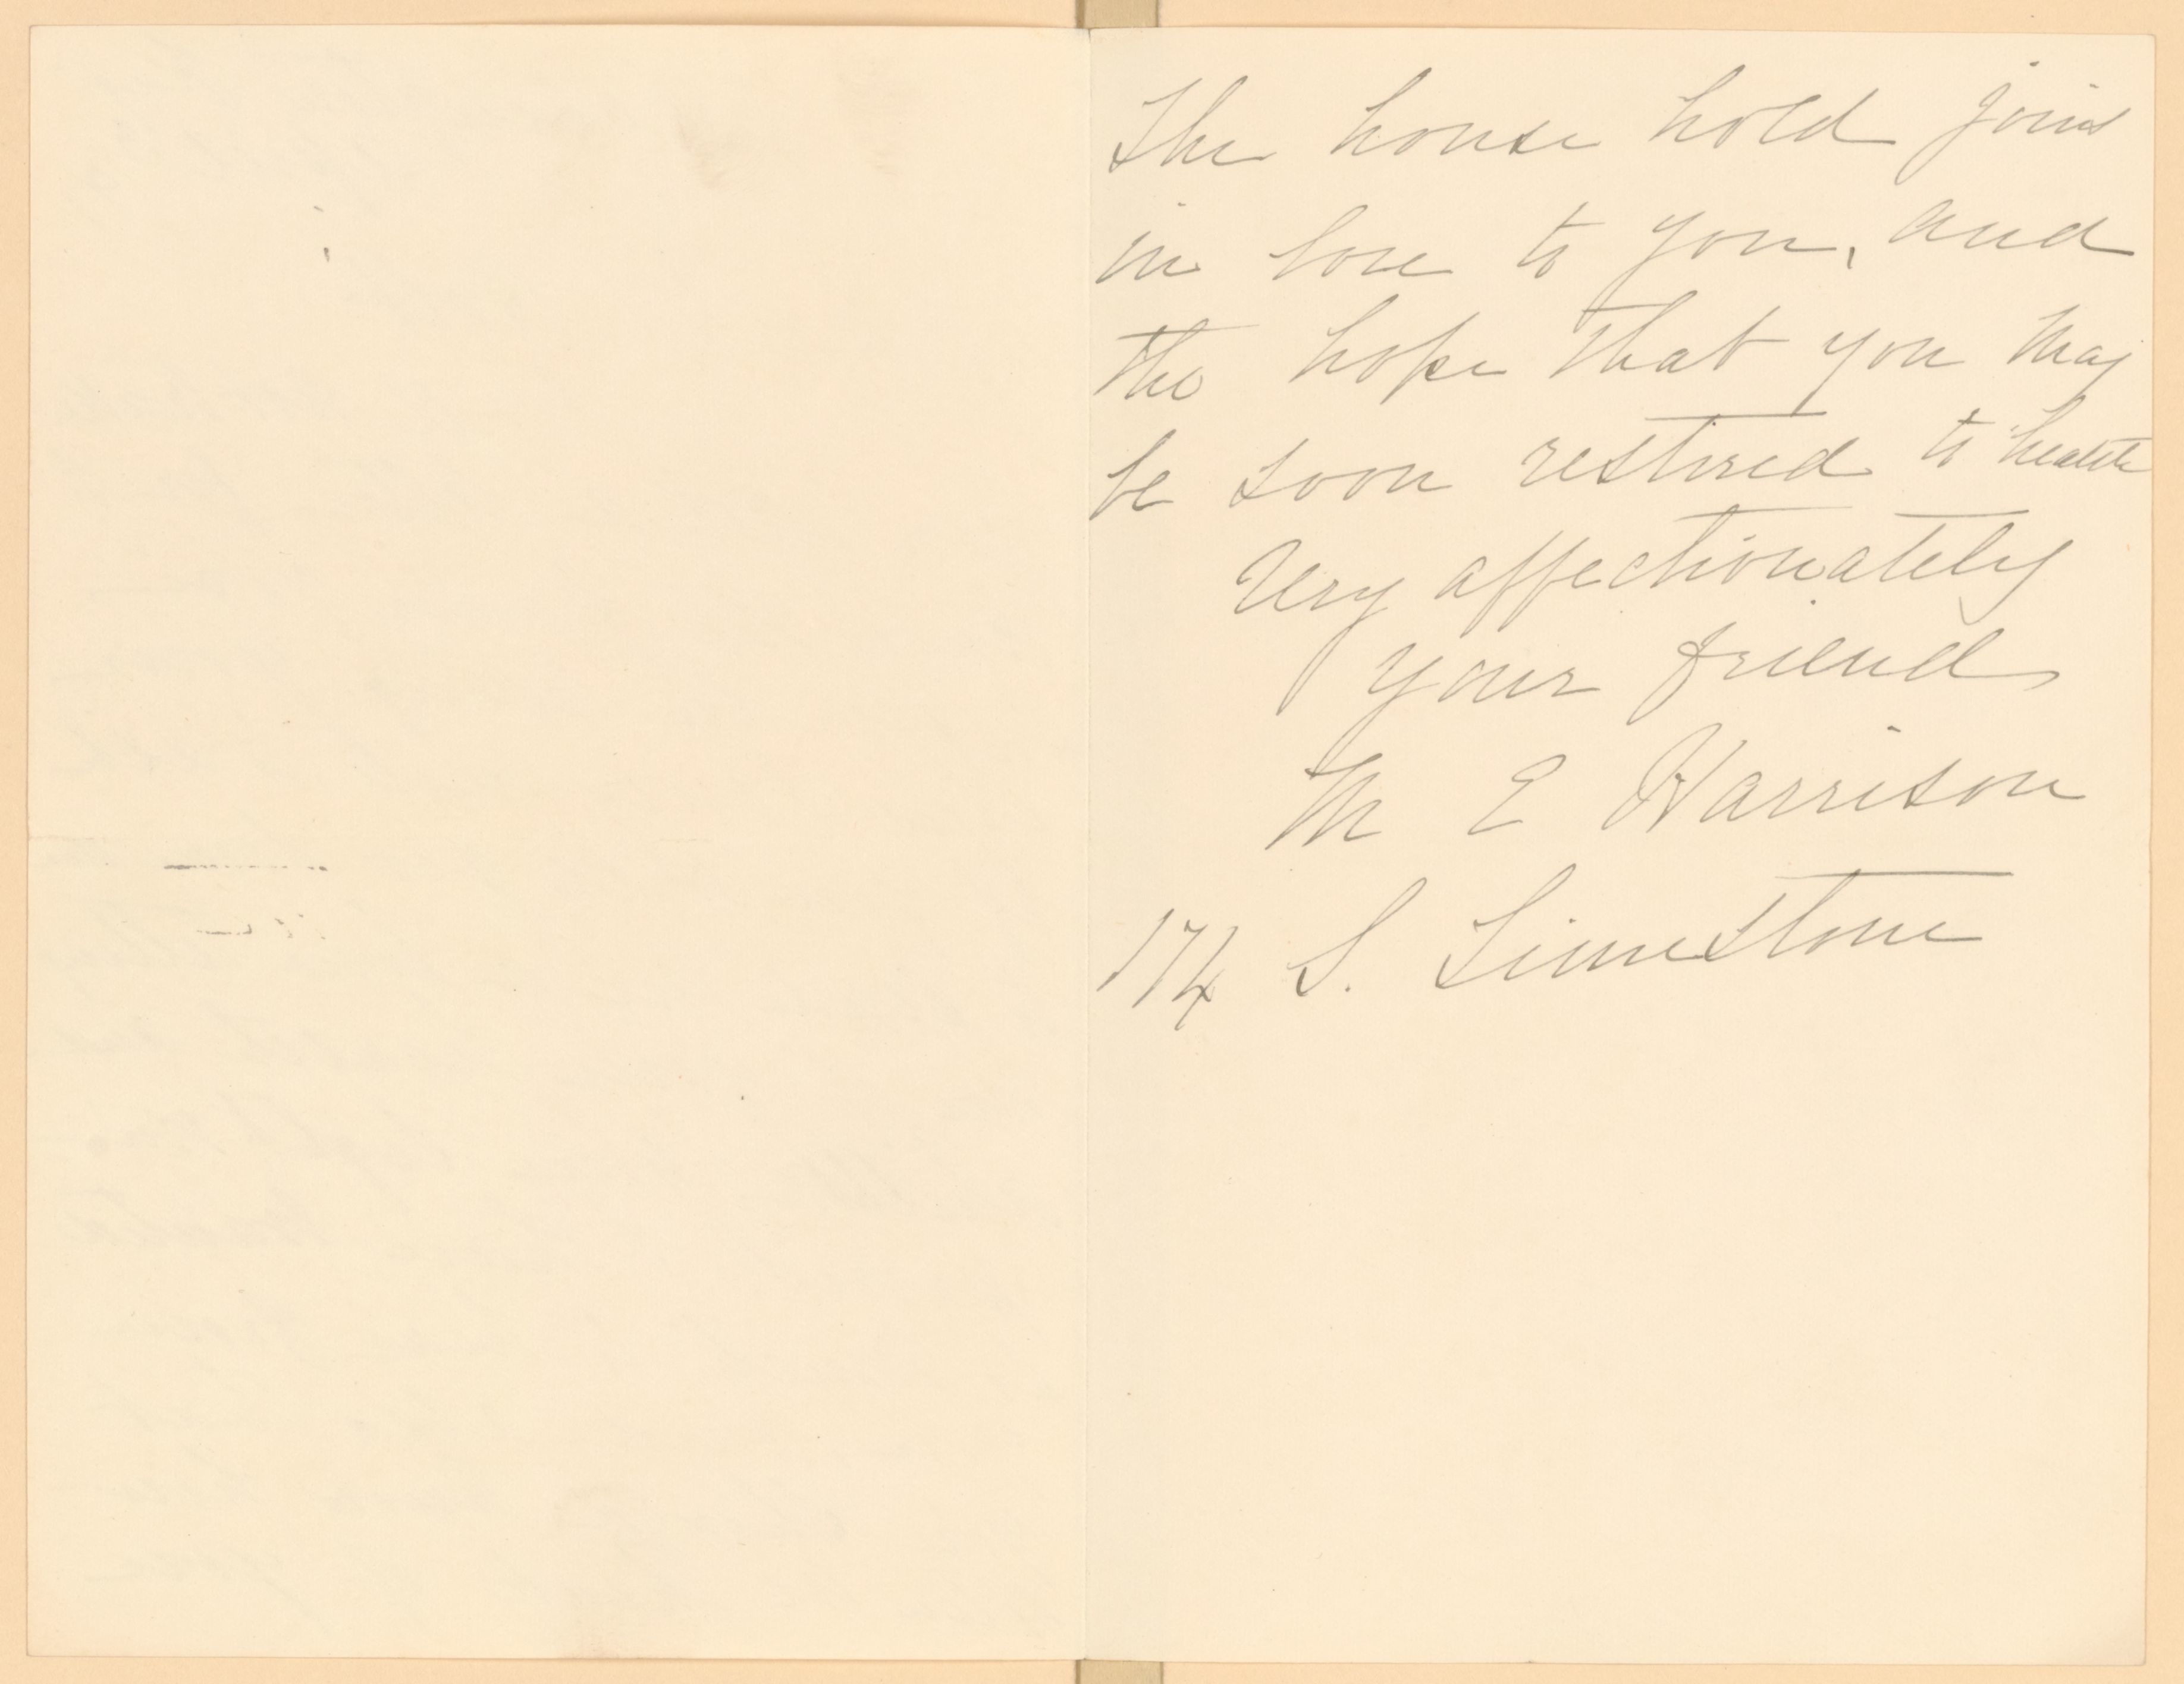 The house hold joins
in love to you, and
the hope that you may
be soon restored to health
Very affectionately
your friend
M E Harrison
174 S. Limestone